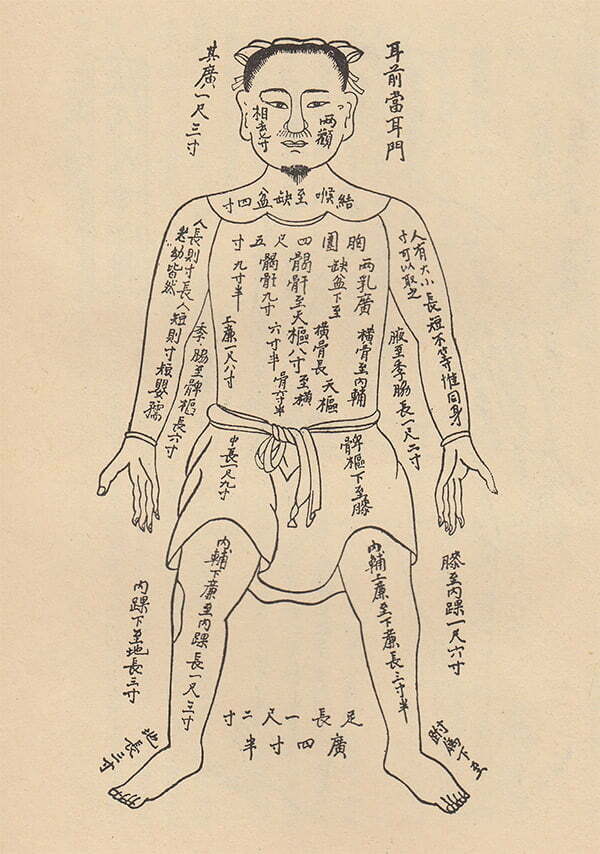 耳前當耳門
其廣一尺三寸
兩顴
相去
結喉至缺盆四寸
胸圍四尺五寸
兩乳廣
九寸半
缺盆下至
𩩲骬九寸
𩩲骬至天樞八寸
天樞
至橫
骨六寸半
橫骨長
六寸半
橫骨至內輔
上廉一尺八寸
人有大小長短不等惟同身
寸可以取之
人長則寸長人短則寸短嬰孺
老幼皆然
腋至季脇長一尺二寸
季脇至髀樞長六寸
髀樞下至膝
中長一尺九寸
內輔上廉至下廉長三寸半
內輔下廉至內踝長一尺三寸
膝至內踝一尺六寸
內踝下至地長三寸
跗屬下至
地長三寸
足長一尺二寸
廣四寸半